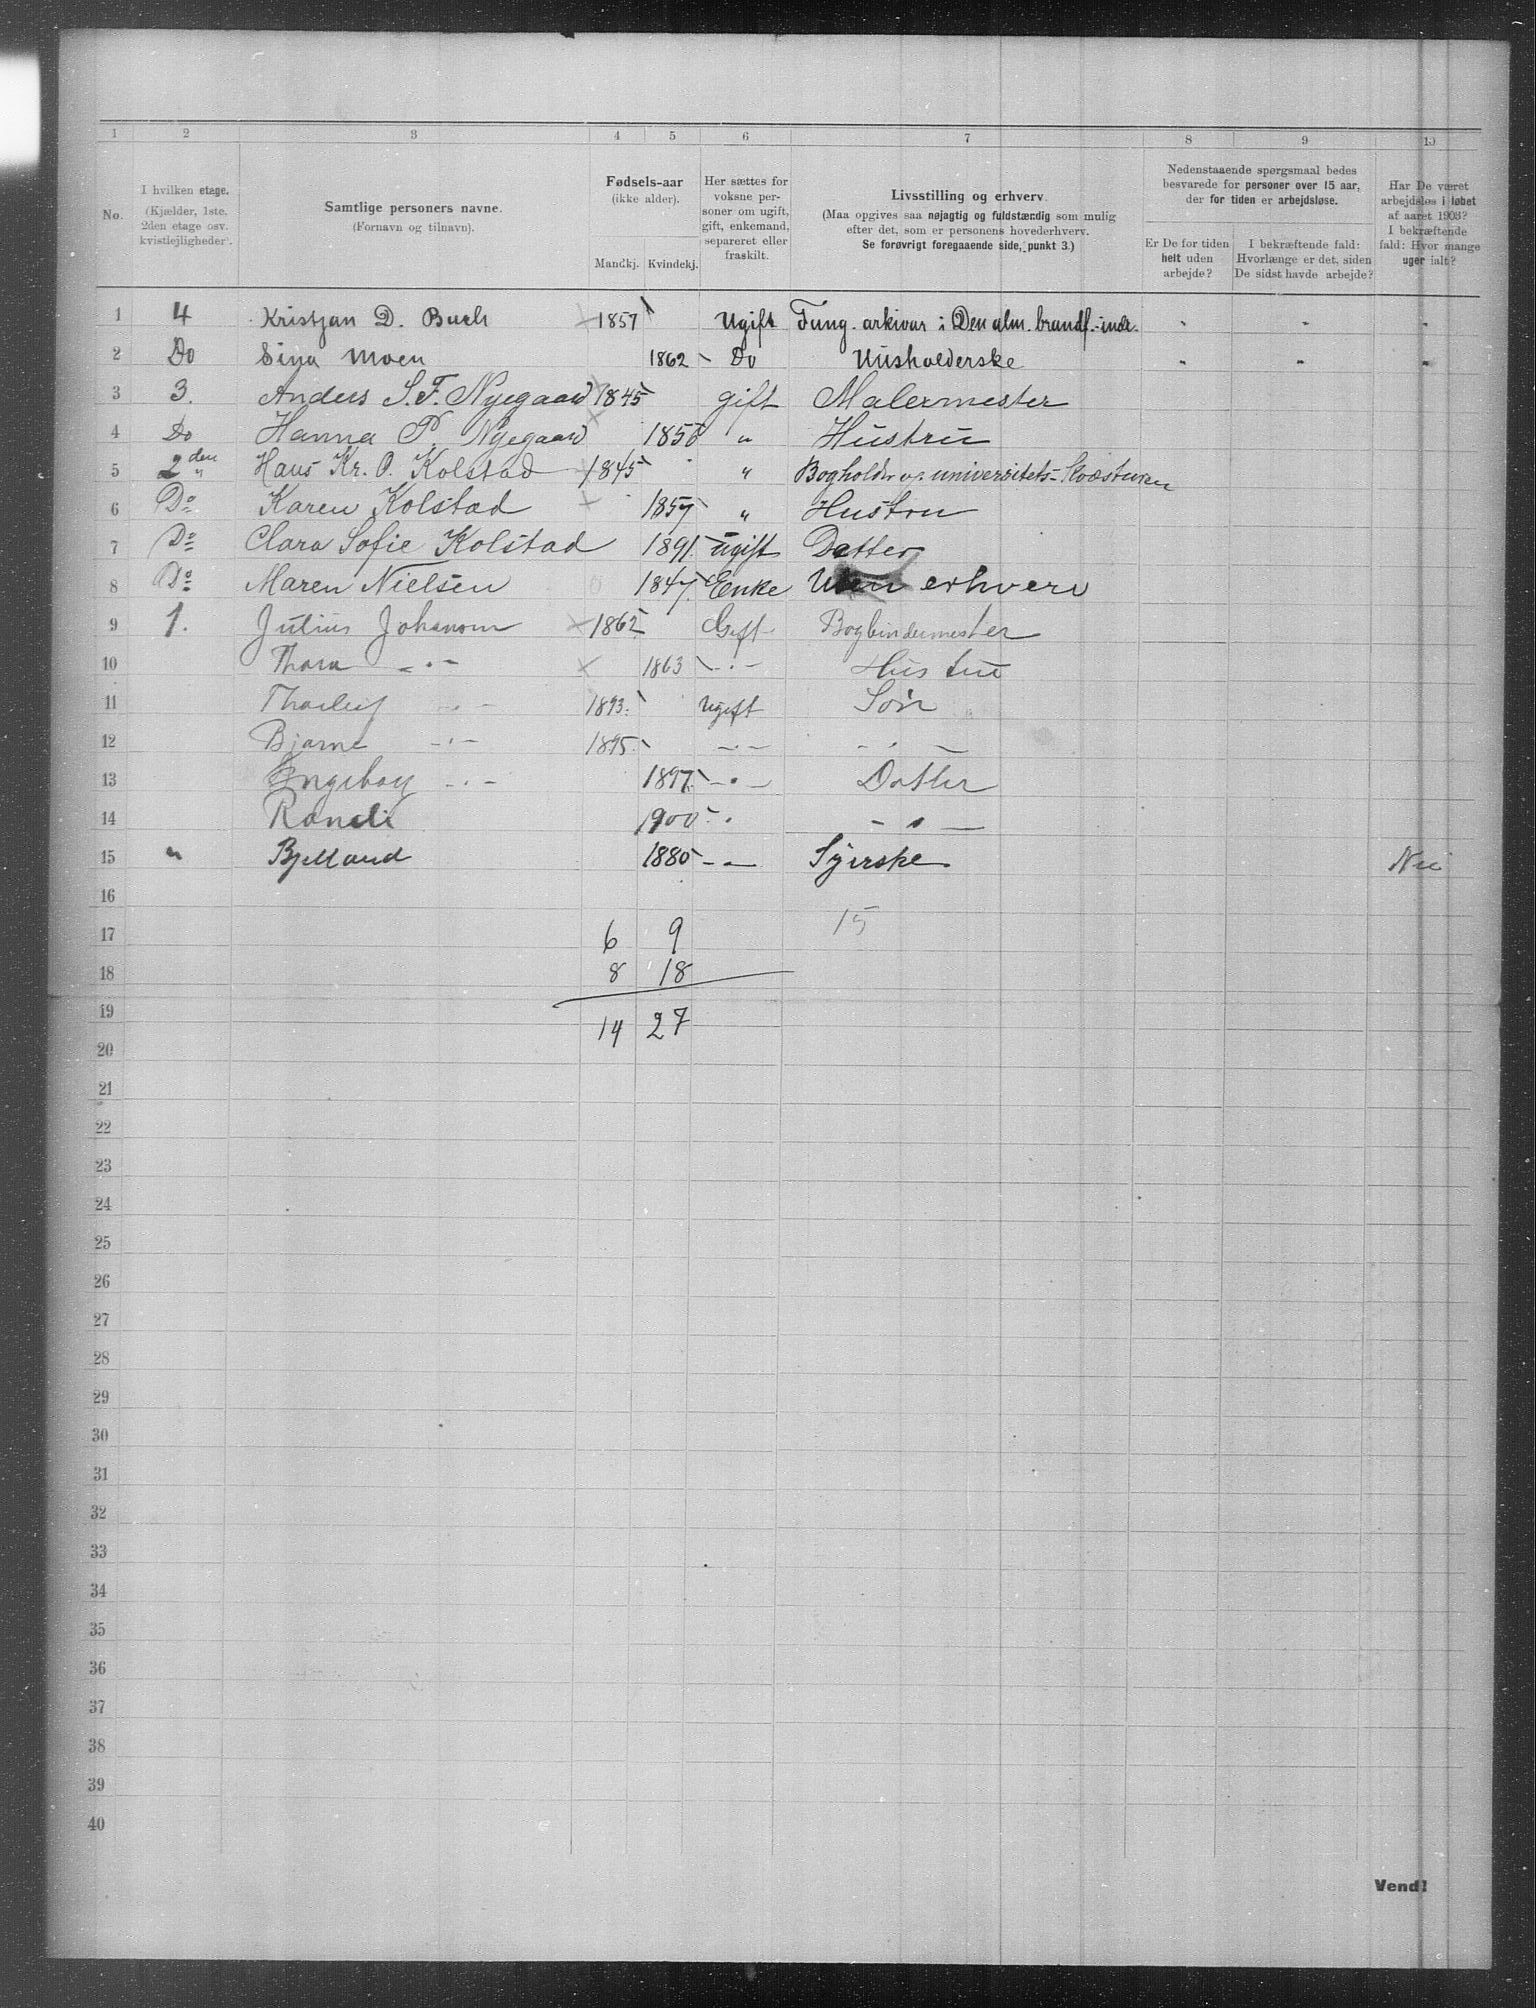 1 2 3 4 5 6 7 8 9 10
No. I hvilken etage. (Kjælder, 1ste, 2den etage osv. kvistlejligheder). Samtlige personers navne. (Fornavn og tilnavn). Fødsels-aar (ikke alder). Mandkj. Kvindekj. Her sættes for voksne personer om ugift, gift, enkemand, separeret eller fraskilt. Livsstilling og erhverv. (Maa opgives saa nøjagtig og fuldstændig som mulig efter det, som er personens hovederhverv. Se forøvrigt foregaaende side, punkt 3.) Nedenstaaende spørgsmaal bedes besvarede for personer over 15 aar, der for tiden er arbejdsløse. Er De for tiden helt uden arbejde? I bekræftende fald: Hvorlænge er det, siden De sidst havde arbejde? Har De været arbejdsløs i løbet af aaret 1903? I bekræftende fald: Hvor mange uger ialt?
1 4 Kristjan D. Buch 1857 Ugift Fung. arkivar i Den alm. brandf.-indr. " " "
2 Do Sina Moen 1862 Do Husholderske " " "
3 3. Anders S. F. Nyegaard 1845 gift Malermester
4 Do Hanna P. Nyegaard 1850 " Hustru
5 2den " Hans Kr. O. Kolstad 1845 " Bogholder v. universitets-Kvæsturen
6 Do Karen Kolstad 1857 " Hustru
7 Do Clara Sofie Kolstad 1891. ugift Datter
8 Do Maren Nielsen 0 1847. Enke Uten erhverv
9 1. Julius Johansen 1862 Gift Bogbindermester
10 Thora -"- 1863 -"- Hustru
11 Thorleif -"- 1893. Ugift Søn
12 Bjarne -"- 1895. -"- -"-
13 Ingeborg -"- 1897. -"- Datter
14 Randi 1900 " -"-
15 " Bjelland 1880 -"- Syerske Nei
16
17 6 9 15
18 8 18
19 14 27
20
21
22
23
24
25
26
27
28
29
30
31
32
33
34
35
36
37
38
39
40
Vend!